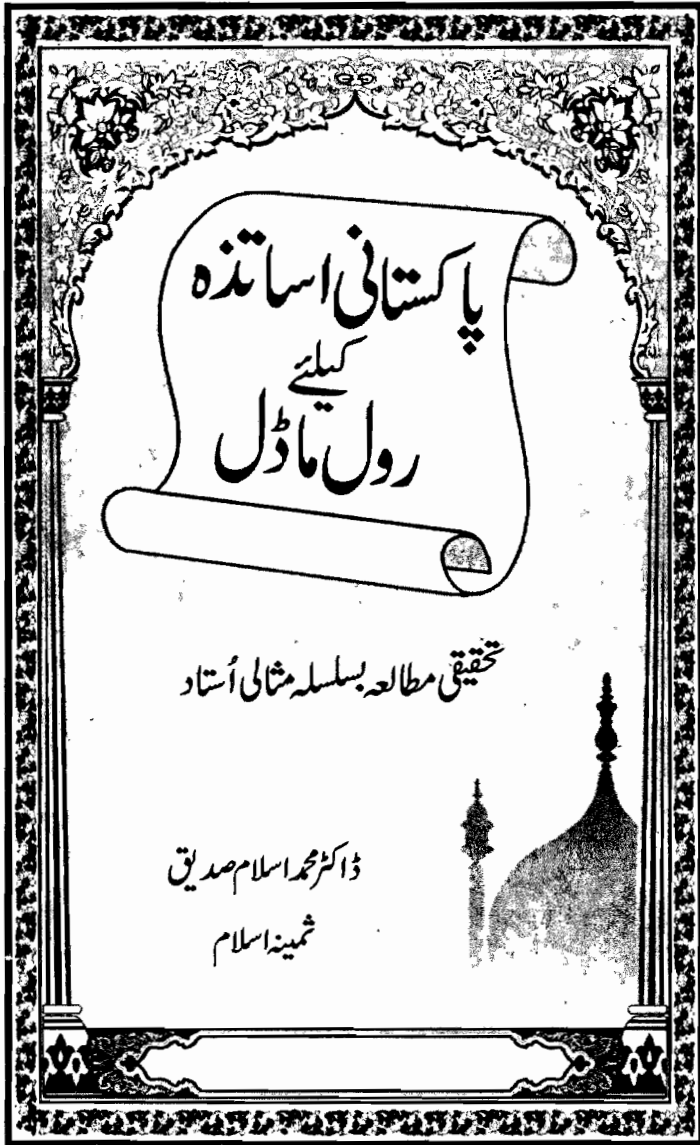 پاکستانی اساتذہ
کیلئے
رول ماڈل
تحقیقی مطالعہ بسلسلہ مثالی اُستاد
ڈاکٹر محمد اسلام صدیق
ثمینہ اسلام